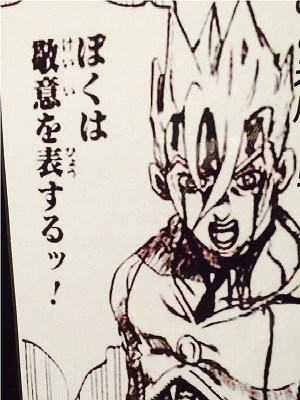 ぼくは
敬意を表するッ！